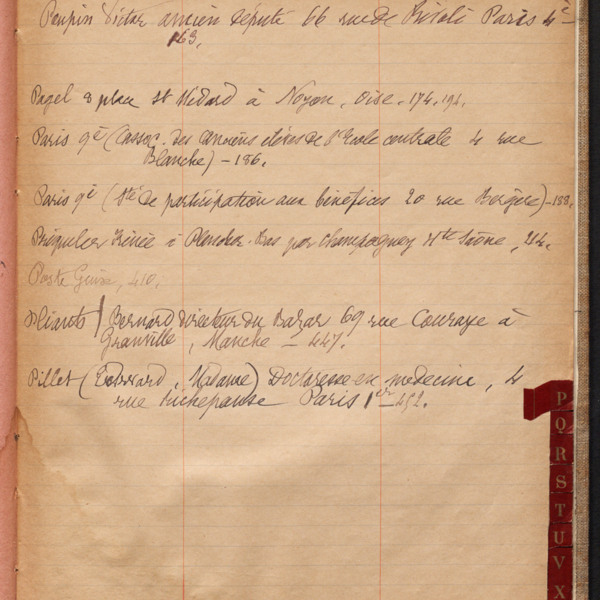 Poupin Victor ancien député 66 rue de Rivoli Paris 4e
163.
Pagel 8 place St Médard à Noyon, Oise. 174. 191.
Paris 9e (Assoc. des Anciens élèves de l'Ecole centrale 4 rue
Blanche) – 186.
Paris 9e (Sté de participation aux bénéfices 20 rue Bergère) – 188.
Irénée à Plancher-Bas par Champagney Hte Saône, 214.
Poste Guise, 410.
Bernard Directeur du Bazar 69 rue Couraye à
Granville, Manche – 447.
Pillet (Edouard, Madame) Doctoresse en médecine, 4
rue Richepanse Paris 1er – 452.
P
Q
R
S
T
U
V
X